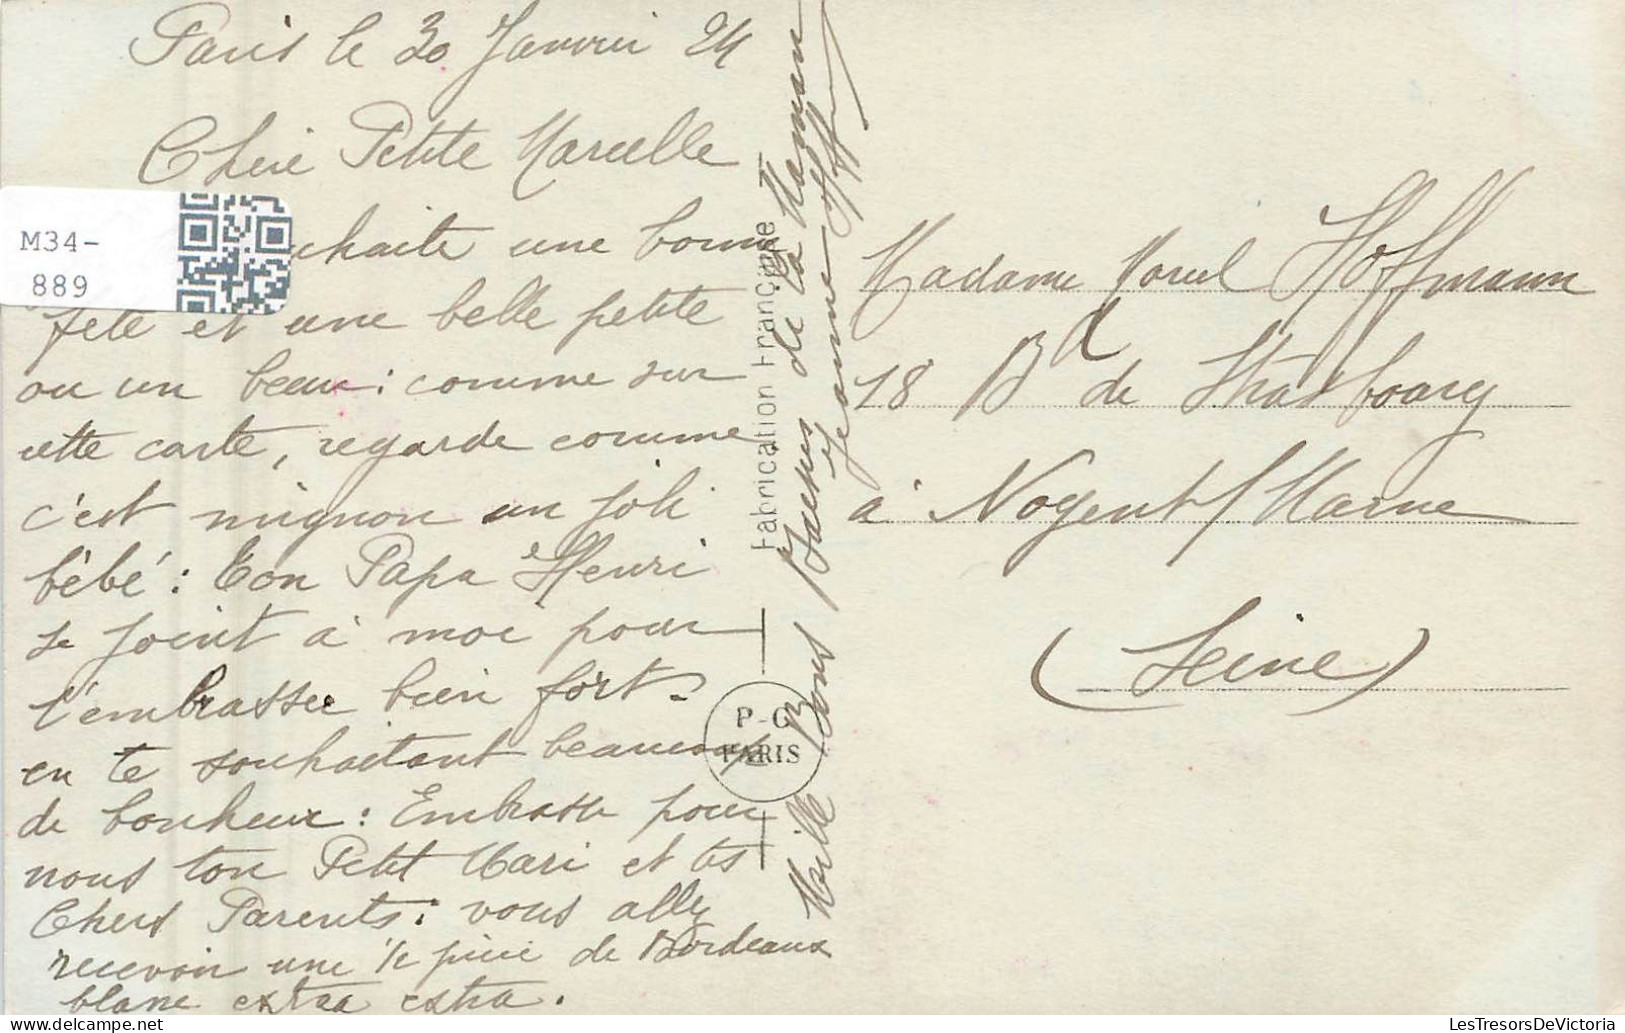 Paris le 30 Janvier 24
Chère Petite Marcelle
M34-
889
uhaite une bonne
fête et une belle petite
ou un beau : comme sur
cette carte, regarde comme
c'est mignon un joli
bébé : Ton Papa Henri
se joint à moi pour
t'embrasser bien fort.
en te souhaitant beaucoup
de bonheur : Embrasse pour
nous ton Petit Mari et tes
Chers Parents : vous allez
recevoir une ½ pièce de Bordeaux
blanc extra extra.
Mille Bons Baisers de la Maman
Jeanne Hoffmann
Fabrication Française
P-C
PARIS
Madame Morel Hoffmann
18 Bd de Strasbourg
à Nogent s/ Marne
(Seine)
LesTresorsDeVictoria